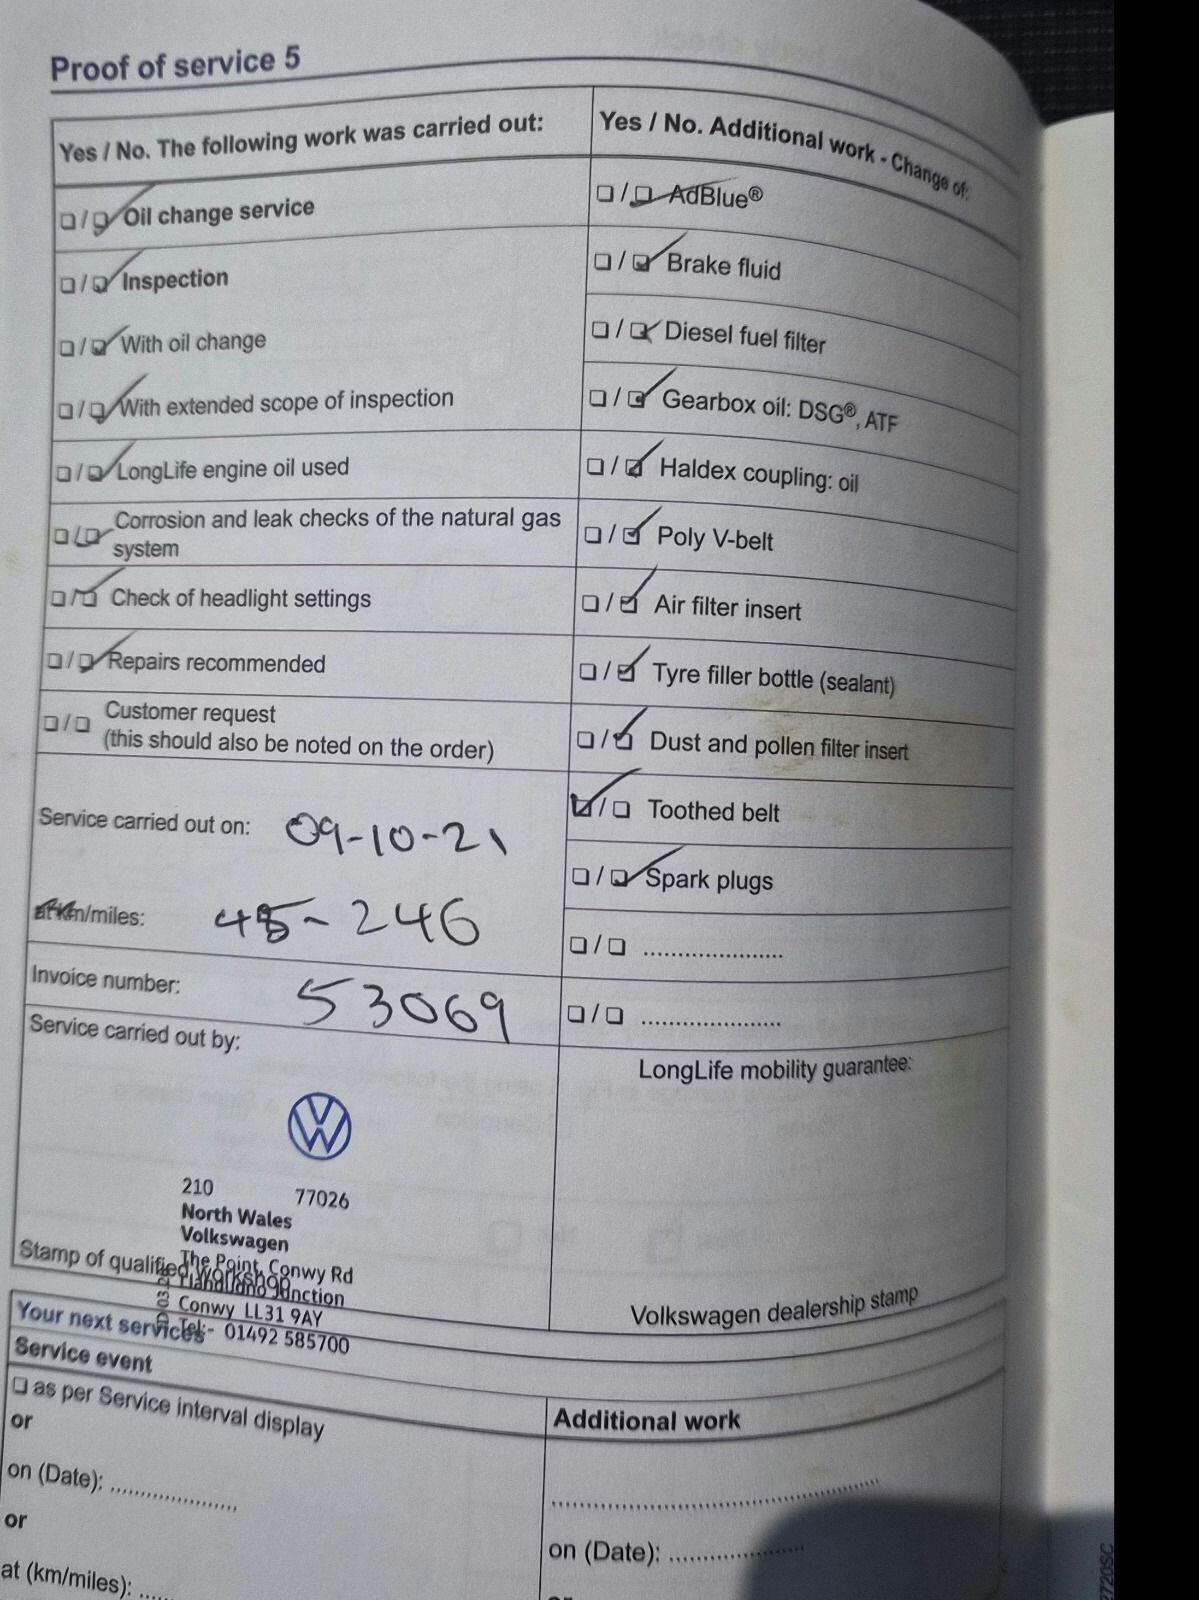 Proof of service 5
Yes / No. The following work was carried out:
Oil change service
Inspection
With oil change
With extended scope of inspection
LongLife engine oil used
Corrosion and leak checks of the natural gas
system
Check of headlight settings
Repairs recommended
Customer request
(this should also be noted on the order)
Service carried out on: 09-10-21
at km/miles: 45-246
Invoice number: 53069
Service carried out by:
210 77026
North Wales
Volkswagen
The Point, Conwy Rd
Llandudno Junction
Conwy LL31 9AY
Tel:- 01492 585700
Stamp of qualified workshop
Yes / No. Additional work - Change of:
AdBlue®
Brake fluid
Diesel fuel filter
Gearbox oil: DSG®, ATF
Haldex coupling: oil
Poly V-belt
Air filter insert
Tyre filler bottle (sealant)
Dust and pollen filter insert
Toothed belt
Spark plugs
......................
......................
LongLife mobility guarantee:
Volkswagen dealership stamp
Your next services
Service event
as per Service interval display
or
on (Date): ......................
or
at (km/miles): ....
Additional work
..................................................
on (Date): ......................
2720SC